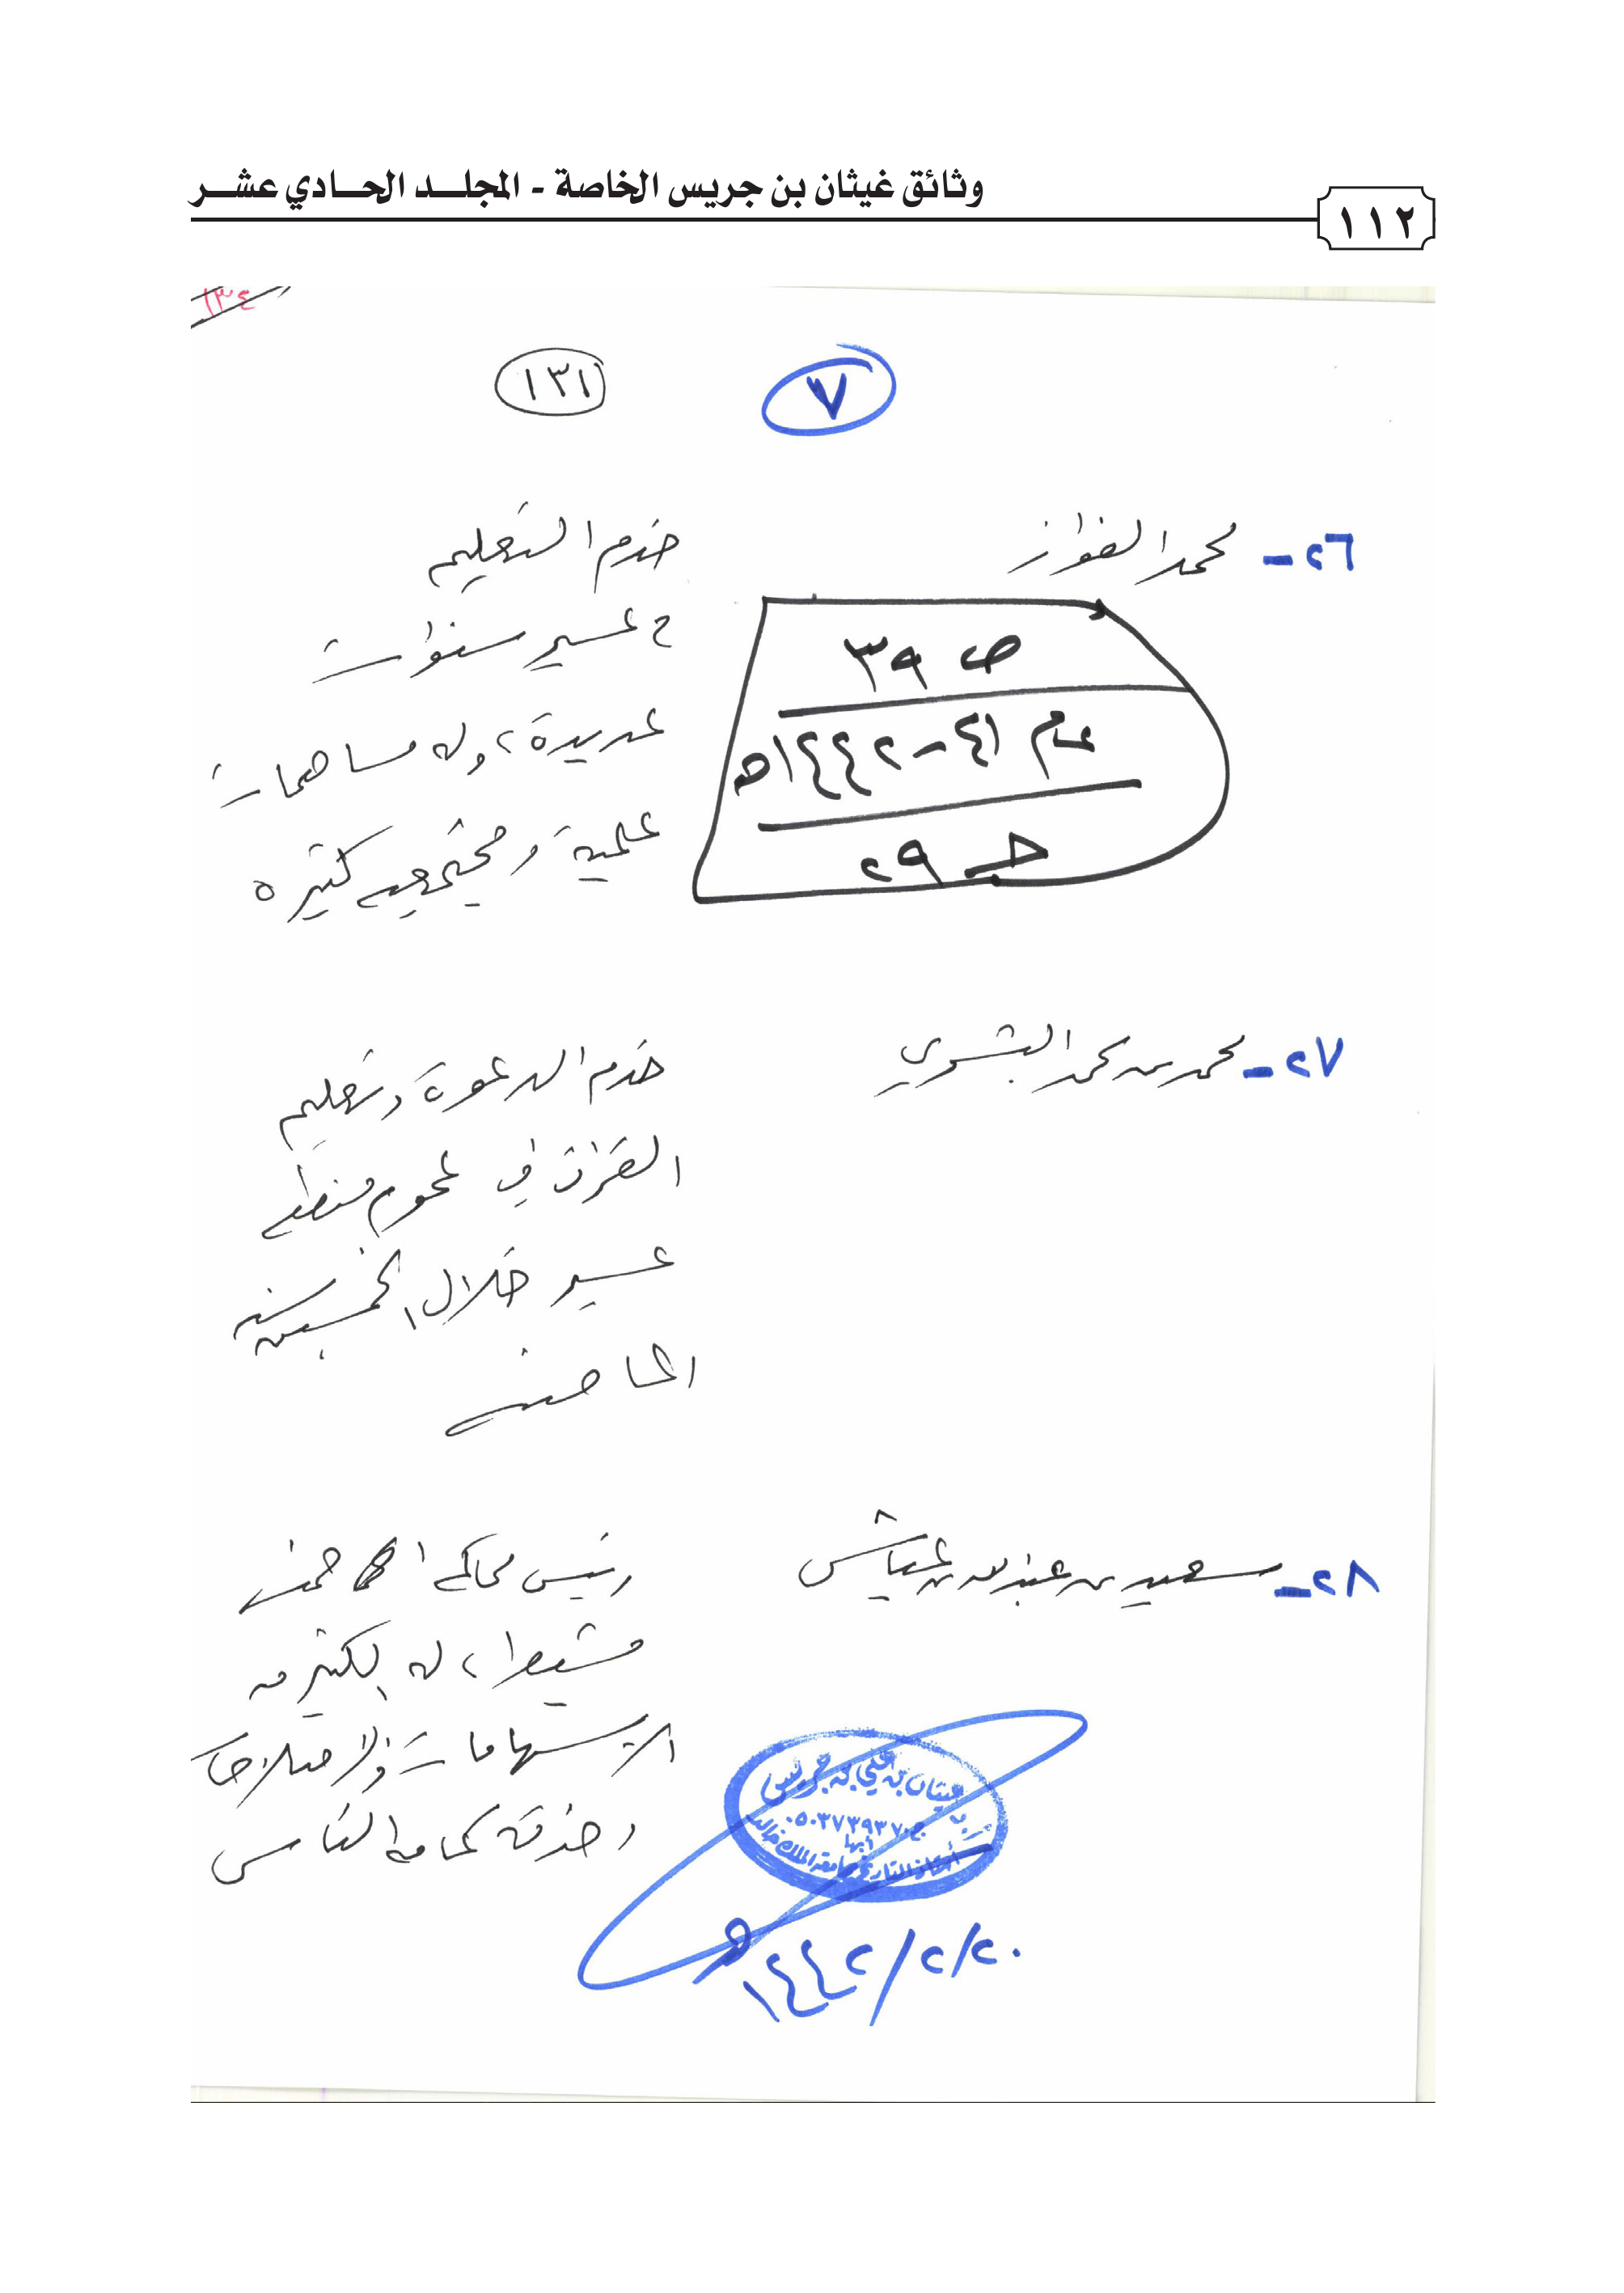 وثائق غيثان بن جريس الخاصة - المجلد الحادي عشر
١١٢
١٣٤
٧
١٣١
٢٦- محمد الفواز
خدم التعليم
ح عسير سنوات
عديدة، وله مساهمات
علمية ومجتمعية كثيرة
ص ٣٩
عام ٤١-١٤٤٢هـ
جـ ٢٩
٢٧- محمد بن محمد البشري
خدم الدعوة وتعليم
القرآن في عموم منطقة
عسير خلال الخمسين سنة
الماضية
٢٨- سعيد بن عبدالله بن عياش
رئيس محاكم خميس
مشيط، له الكثير من
الإسهامات والإصلاحات
وخدمة عامة الناس
غيثان بن علي بن جريس
ج ٠٥٠٣٧٣٩٣٧٠
أبها
أستاذ التاريخ بجامعة الملك خالد
٢٠/٢/١٤٤٢هـ